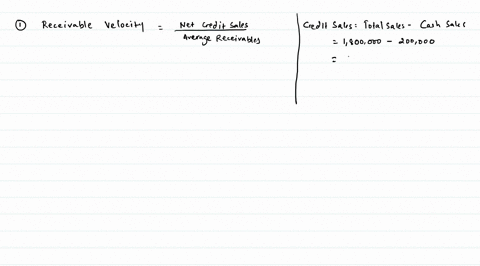 ① Receivable Velocity = Net Credit Sales / Average Receivables
Credit Sales = Total Sales - Cash Sales
= 1,800,000 - 200,000
=